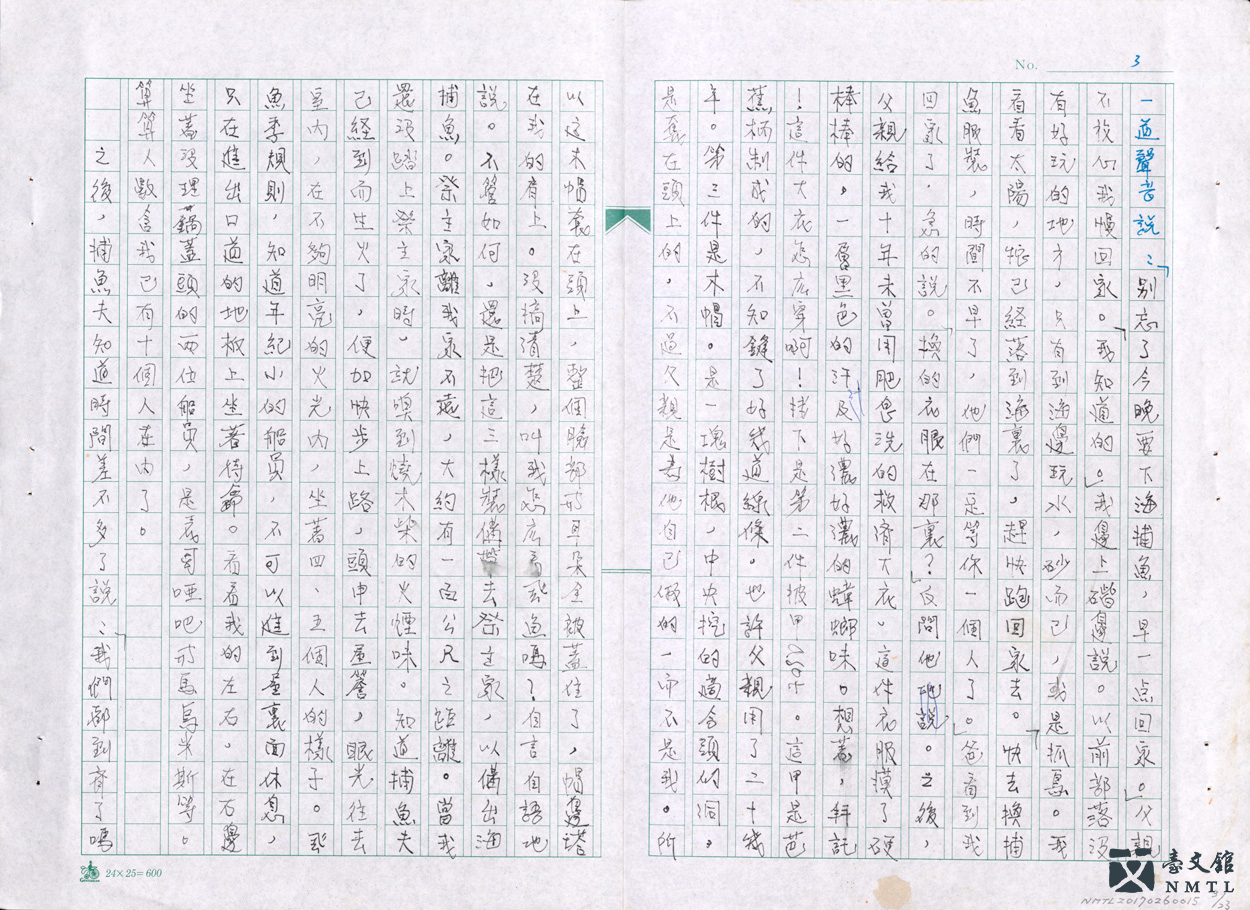 No. 3
一道聲音說：「別忘了今晚要下海捕魚，早一点回家。」父親
不放心我慢回家。「我知道的。」我邊上磖邊說。以前部落沒
有好玩的地方，只有到海邊玩水，砂而已，或是抓鳥。我
看看太陽，它已経落到海裏了，趕快跑回家去。「快去換捕
魚服裝，時間不早了，他們一定等你一個人了。」爸看到我
回家了，急的說。「換的衣服在那裏？」反問他說。之後，
父親給我十年未曾用肥皂洗的救濟大衣。這件衣服摸了硬
棒棒的，一層黑色的汗及好濃好濃的蟑螂味。想著，拜託
！這件大衣怎広穿啊！接下是第二件披甲。這甲是芭
蕉柄制成的，不知鏠了好幾道線條。也許父親用了二十幾
年。第三件是木帽。是一塊樹根，中央挖的適合頭的洞，
是套在頭上的，不過父親是為他自己做的一而不是我。所
以這木帽套在頭上，整個臉部而耳朵全被蓋住了，帽邊塔
在我的肩上。沒搞清楚，叫我怎広看飛魚嗎？自言自語地
說。不管如何，還是把這三樣裝備帶去祭主家，以備出海
捕魚。祭主家離我家不遠，大約有一百公尺之距離。當我
還沒踏上祭主家時，就嗅到燒木柴的火煙味。知道捕魚夫
己経到而生火了，便加快步上路，頭伸去屋簷，眼光往去
屋內，在不夠明亮的火光內，坐著四、五個人的樣子。飛
魚季規則，知道年紀小的船員，不可以進到屋裏面休息，
只在進出口道的地板上坐著待命。看看我的左右，在右邊
坐著沒理鍋蓋頭的两位船員，是表哥啞吧而馬烏米斯等。
算算人數含我已有十個人在內了。
之後，捕魚夫知道時間差不多了說：「我們都到齊了嗎
24×25=600
臺文館
NMTL
NMTL20170260015
3/23